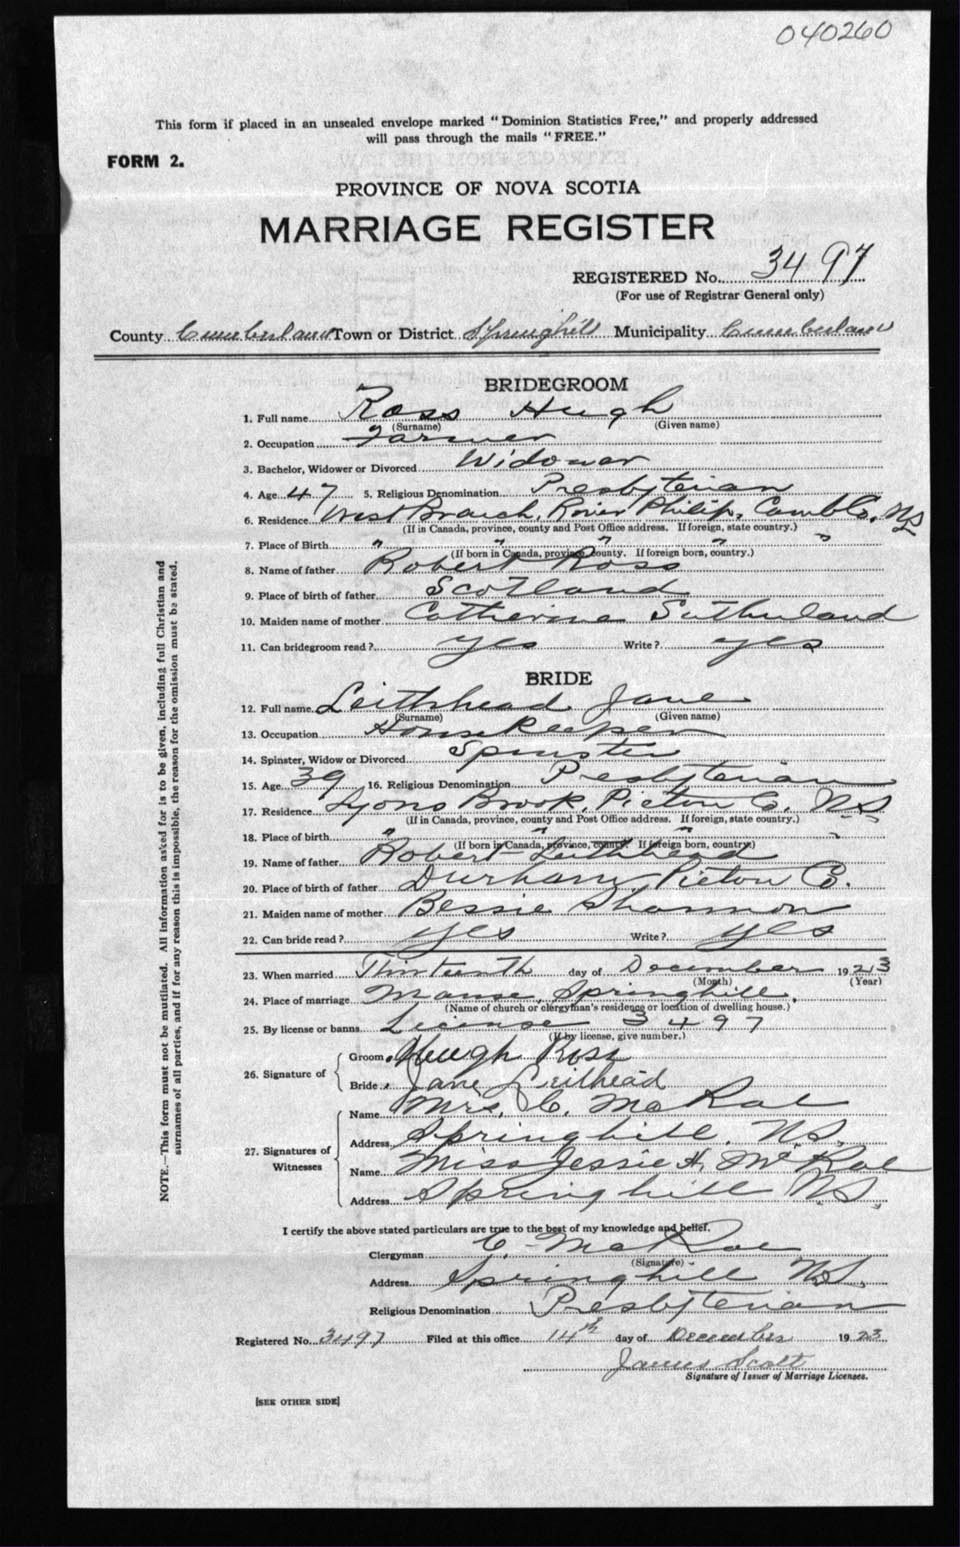 040260
This form if placed in an unsealed envelope marked "Dominion Statistics Free," and properly addressed
will pass through the mails "FREE."
FORM 2.
PROVINCE OF NOVA SCOTIA
MARRIAGE REGISTER
REGISTERED No. 3497
(For use of Registrar General only)
County Cumberland Town or District Springhill Municipality Cumberland
BRIDEGROOM
1. Full name Ross Hugh
(Surname) (Given name)
2. Occupation Farmer
3. Bachelor, Widower or Divorced Widower
4. Age 47 5. Religious Denomination Presbyterian
6. Residence West Branch, River Philip, Cumb Co. NS
(If in Canada, province, county and Post Office address. If foreign, state country.)
7. Place of Birth " " " " "
(If born in Canada, province, county. If foreign born, country.)
8. Name of father Robert Ross
9. Place of birth of father Scotland
10. Maiden name of mother Catherine Sutherland
11. Can bridegroom read? yes Write? yes
BRIDE
12. Full name Leithhead Jane
(Surname) (Given name)
13. Occupation Housekeeper
14. Spinster, Widow or Divorced Spinster
15. Age 39 16. Religious Denomination Presbyterian
17. Residence Lyons Brook, Pictou Co. N.S.
(If in Canada, province, county and Post Office address. If foreign, state country.)
18. Place of birth " " " "
(If born in Canada, province, county. If foreign born, country.)
19. Name of father Robert Leithhead
20. Place of birth of father Durham, Pictou Co.
21. Maiden name of mother Bessie Shannon
22. Can bride read? yes Write? yes
23. When married Thirteenth day of December 1923
(Month) (Year)
24. Place of marriage Manse, Springhill,
(Name of church or clergyman's residence or location of dwelling house.)
25. By license or banns License 3497
(If by license, give number.)
26. Signature of Groom Hugh Ross
Bride Jane Leithead
27. Signatures of Witnesses Name Mrs. C. McRae
Address Springhill, N.S.
Name Miss Jessie H. McRae
Address Springhill N.S.
I certify the above stated particulars are true to the best of my knowledge and belief.
Clergyman C. McRae
(Signature)
Address Springhill N.S.
Religious Denomination Presbyterian
Registered No. 3497 Filed at this office 14th day of December 1923
James Scott
Signature of Issuer of Marriage Licenses.
[SEE OTHER SIDE]
NOTE.—This form must not be mutilated. All information asked for is to be given, including full Christian and
surnames of all parties, and if for any reason this is impossible, the reason for the omission must be stated.